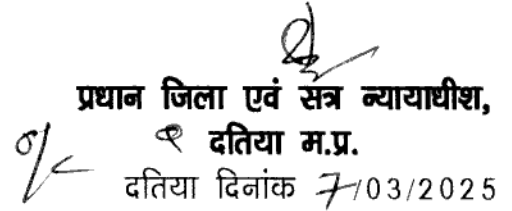 प्रधान जिला एवं सत्र न्यायाधीश,
दतिया म.प्र.
दतिया दिनांक 7/03/2025